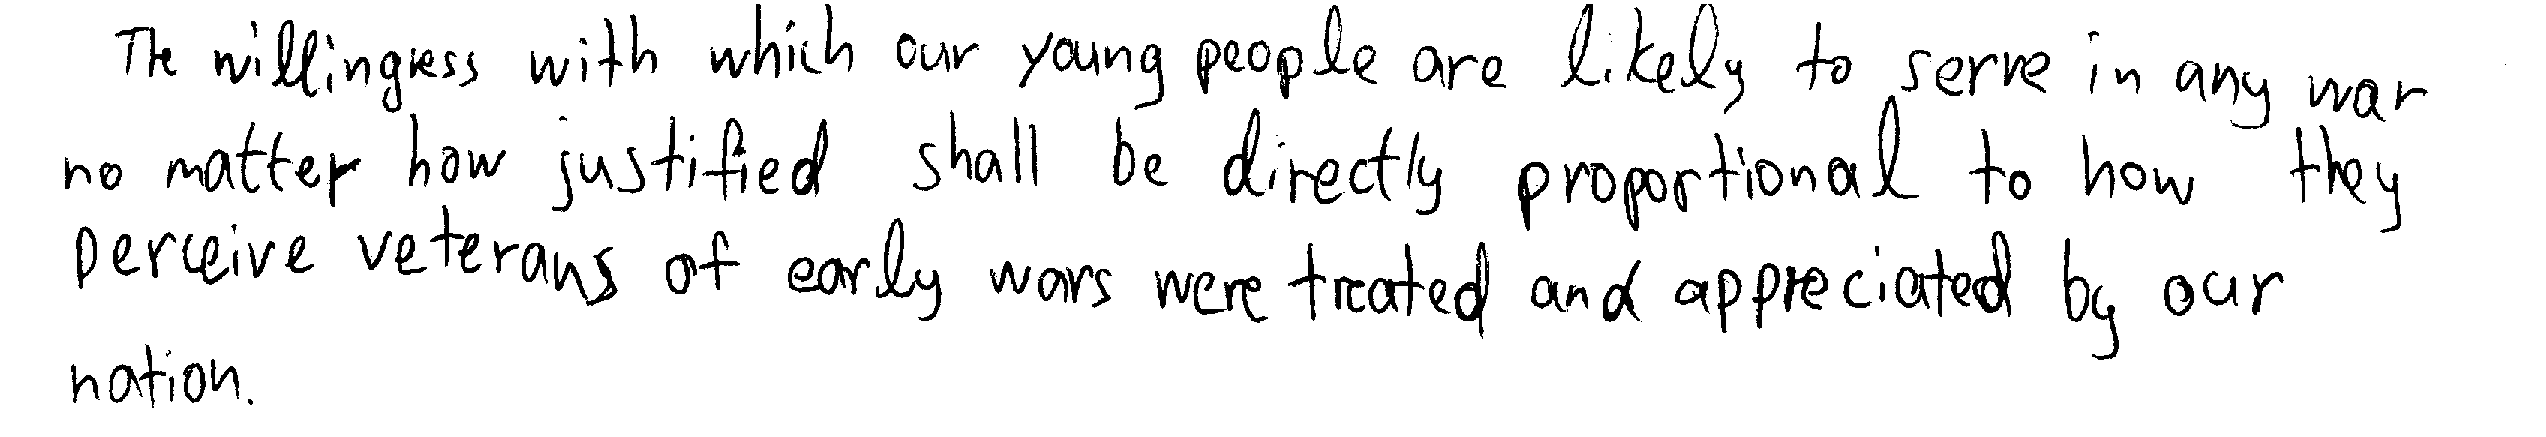 The willingness with which our young people are likely to serve in any war
no matter how justified shall be directly proportional to how they
perceive veterans of early wars were treated and appreciated by our
nation.